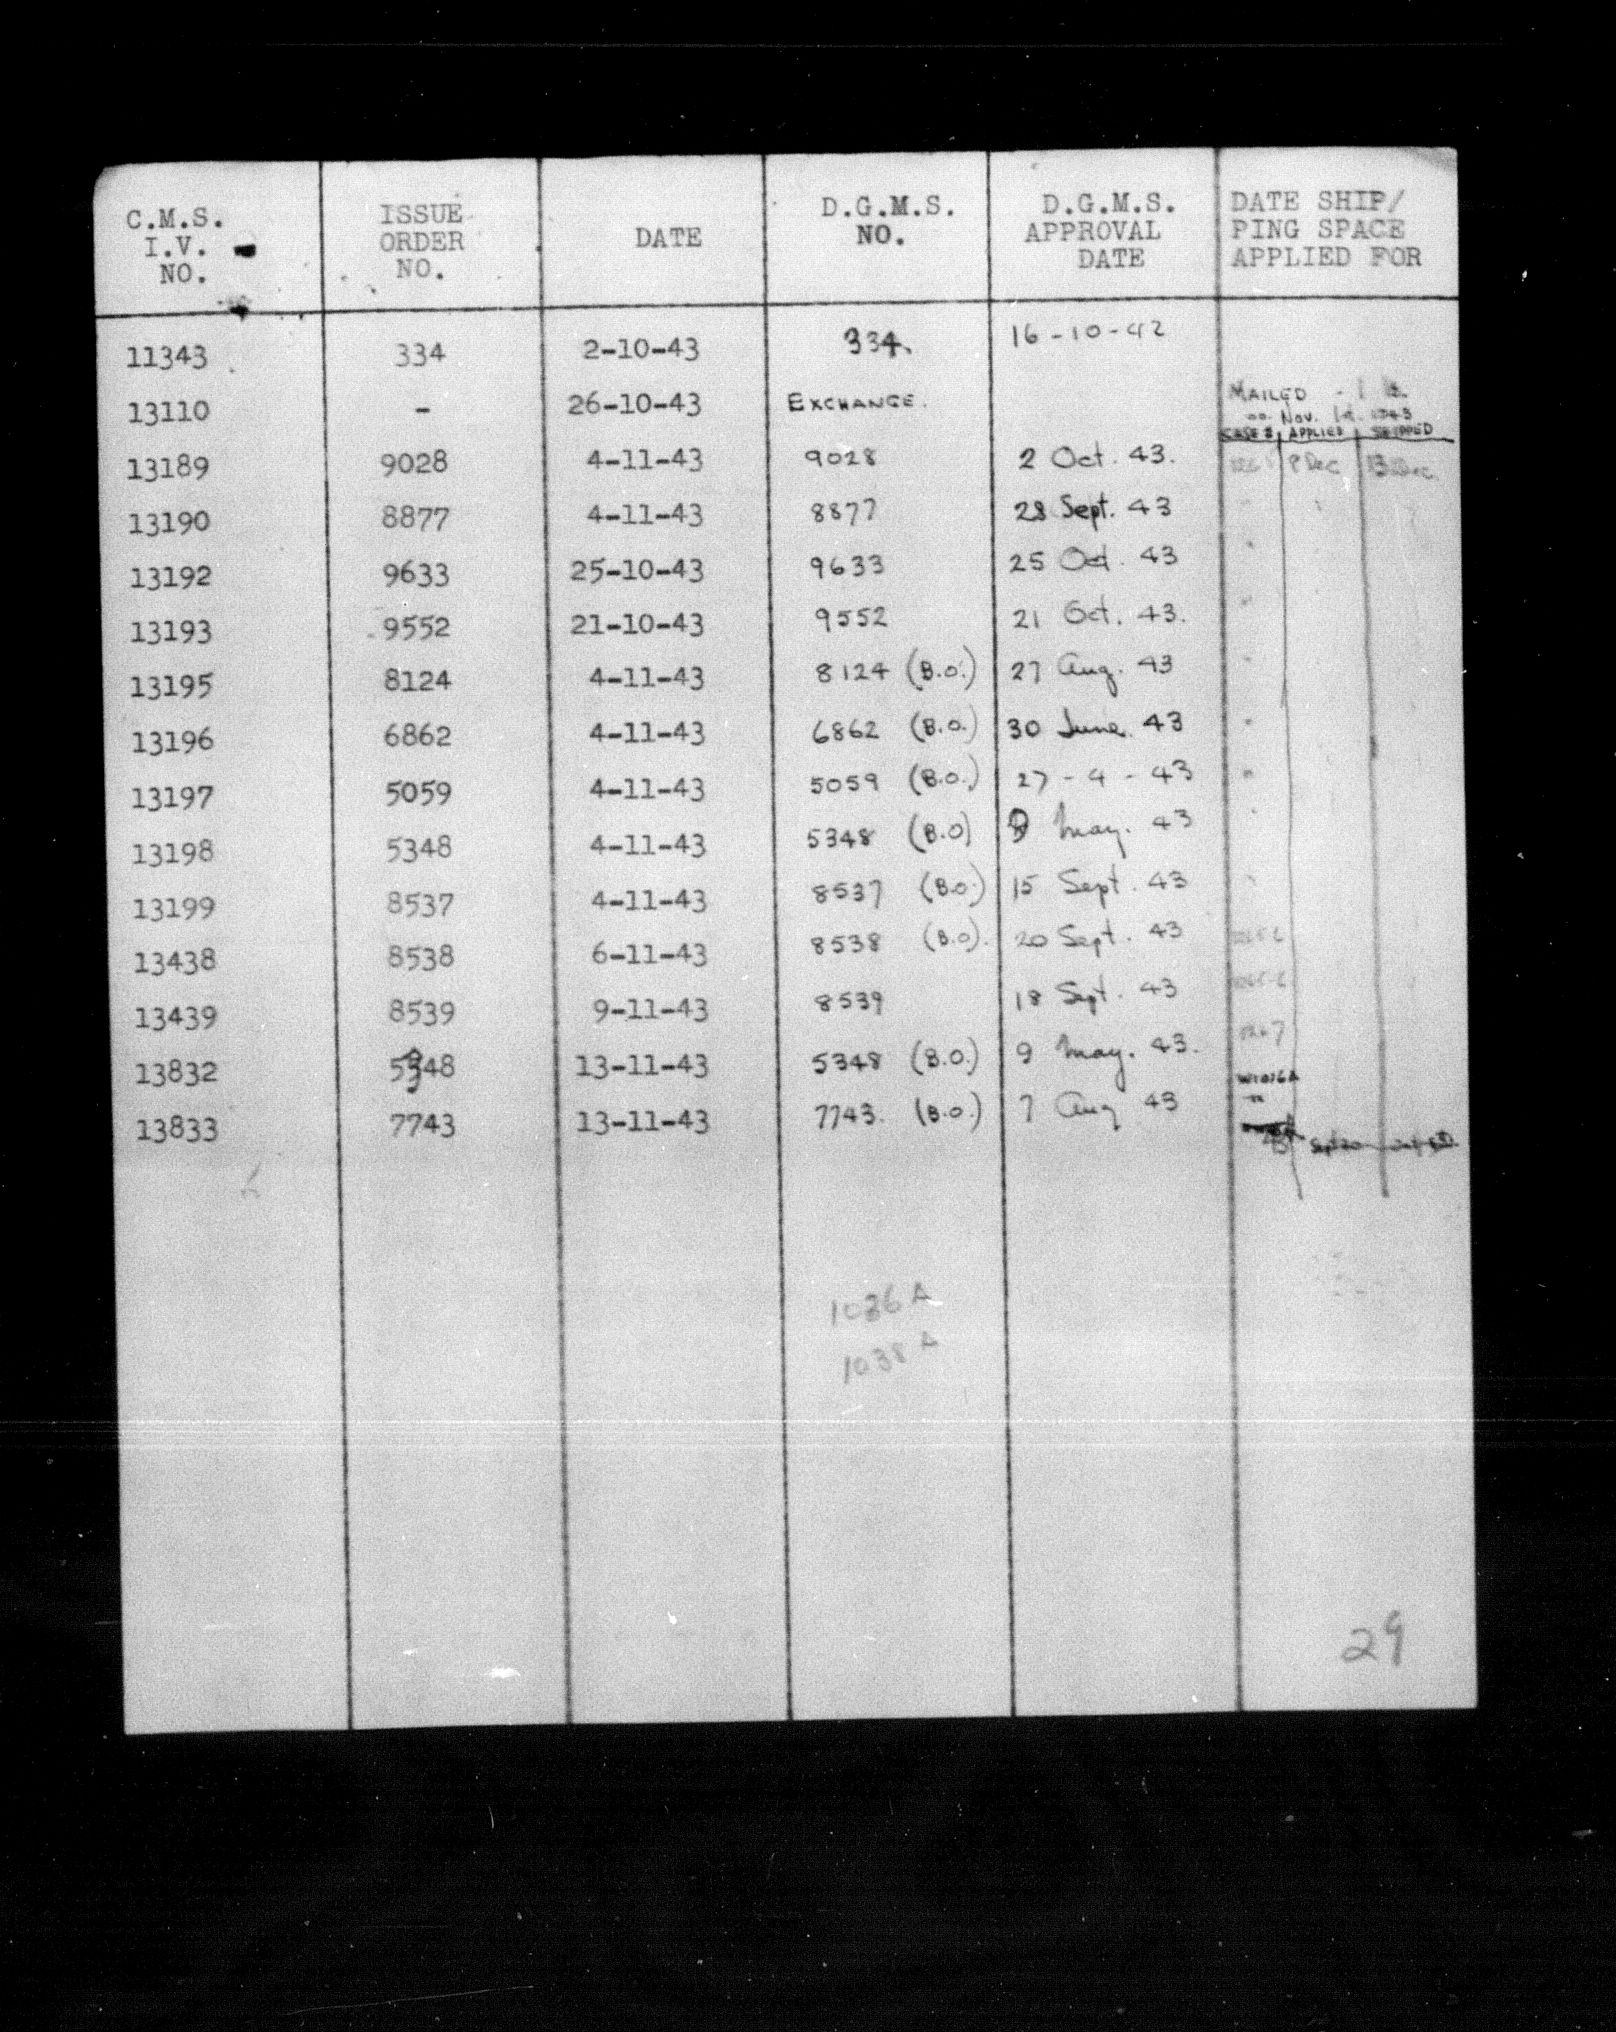 C.M.S. I.V. NO. ISSUE ORDER NO. DATE D.G.M.S. NO. D.G.M.S. APPROVAL DATE DATE SHIP/PING SPACE APPLIED FOR
11343 334 2-10-43 334. 16-10-42
13110 - 26-10-43 EXCHANGE. MAILED - 1
Nov. 1943
CASE # APPLIED SHIPPED
13189 9028 4-11-43 9028 2 Oct. 43. 8 Dec 13 Dec
13190 8877 4-11-43 8877 28 Sept. 43 "
13192 9633 25-10-43 9633 25 Oct. 43 "
13193 9552 21-10-43 9552 21 Oct. 43. "
13195 8124 4-11-43 8124 (B.O.) 27 Aug. 43 "
13196 6862 4-11-43 6862 (B.O.) 30 June. 43 "
13197 5059 4-11-43 5059 (B.O.) 27-4-43 "
13198 5348 4-11-43 5348 (B.O) 9 May. 43 "
13199 8537 4-11-43 8537 (B.O.) 15 Sept. 43 "
13438 8538 6-11-43 8538 (B.O). 20 Sept. 43
13439 8539 9-11-43 8539 18 Sept. 43
13832 5348 13-11-43 5348 (B.O.) 9 May. 43.
13833 7743 13-11-43 7743. (B.O.) 7 Aug 43
1036 A
1038 A
29